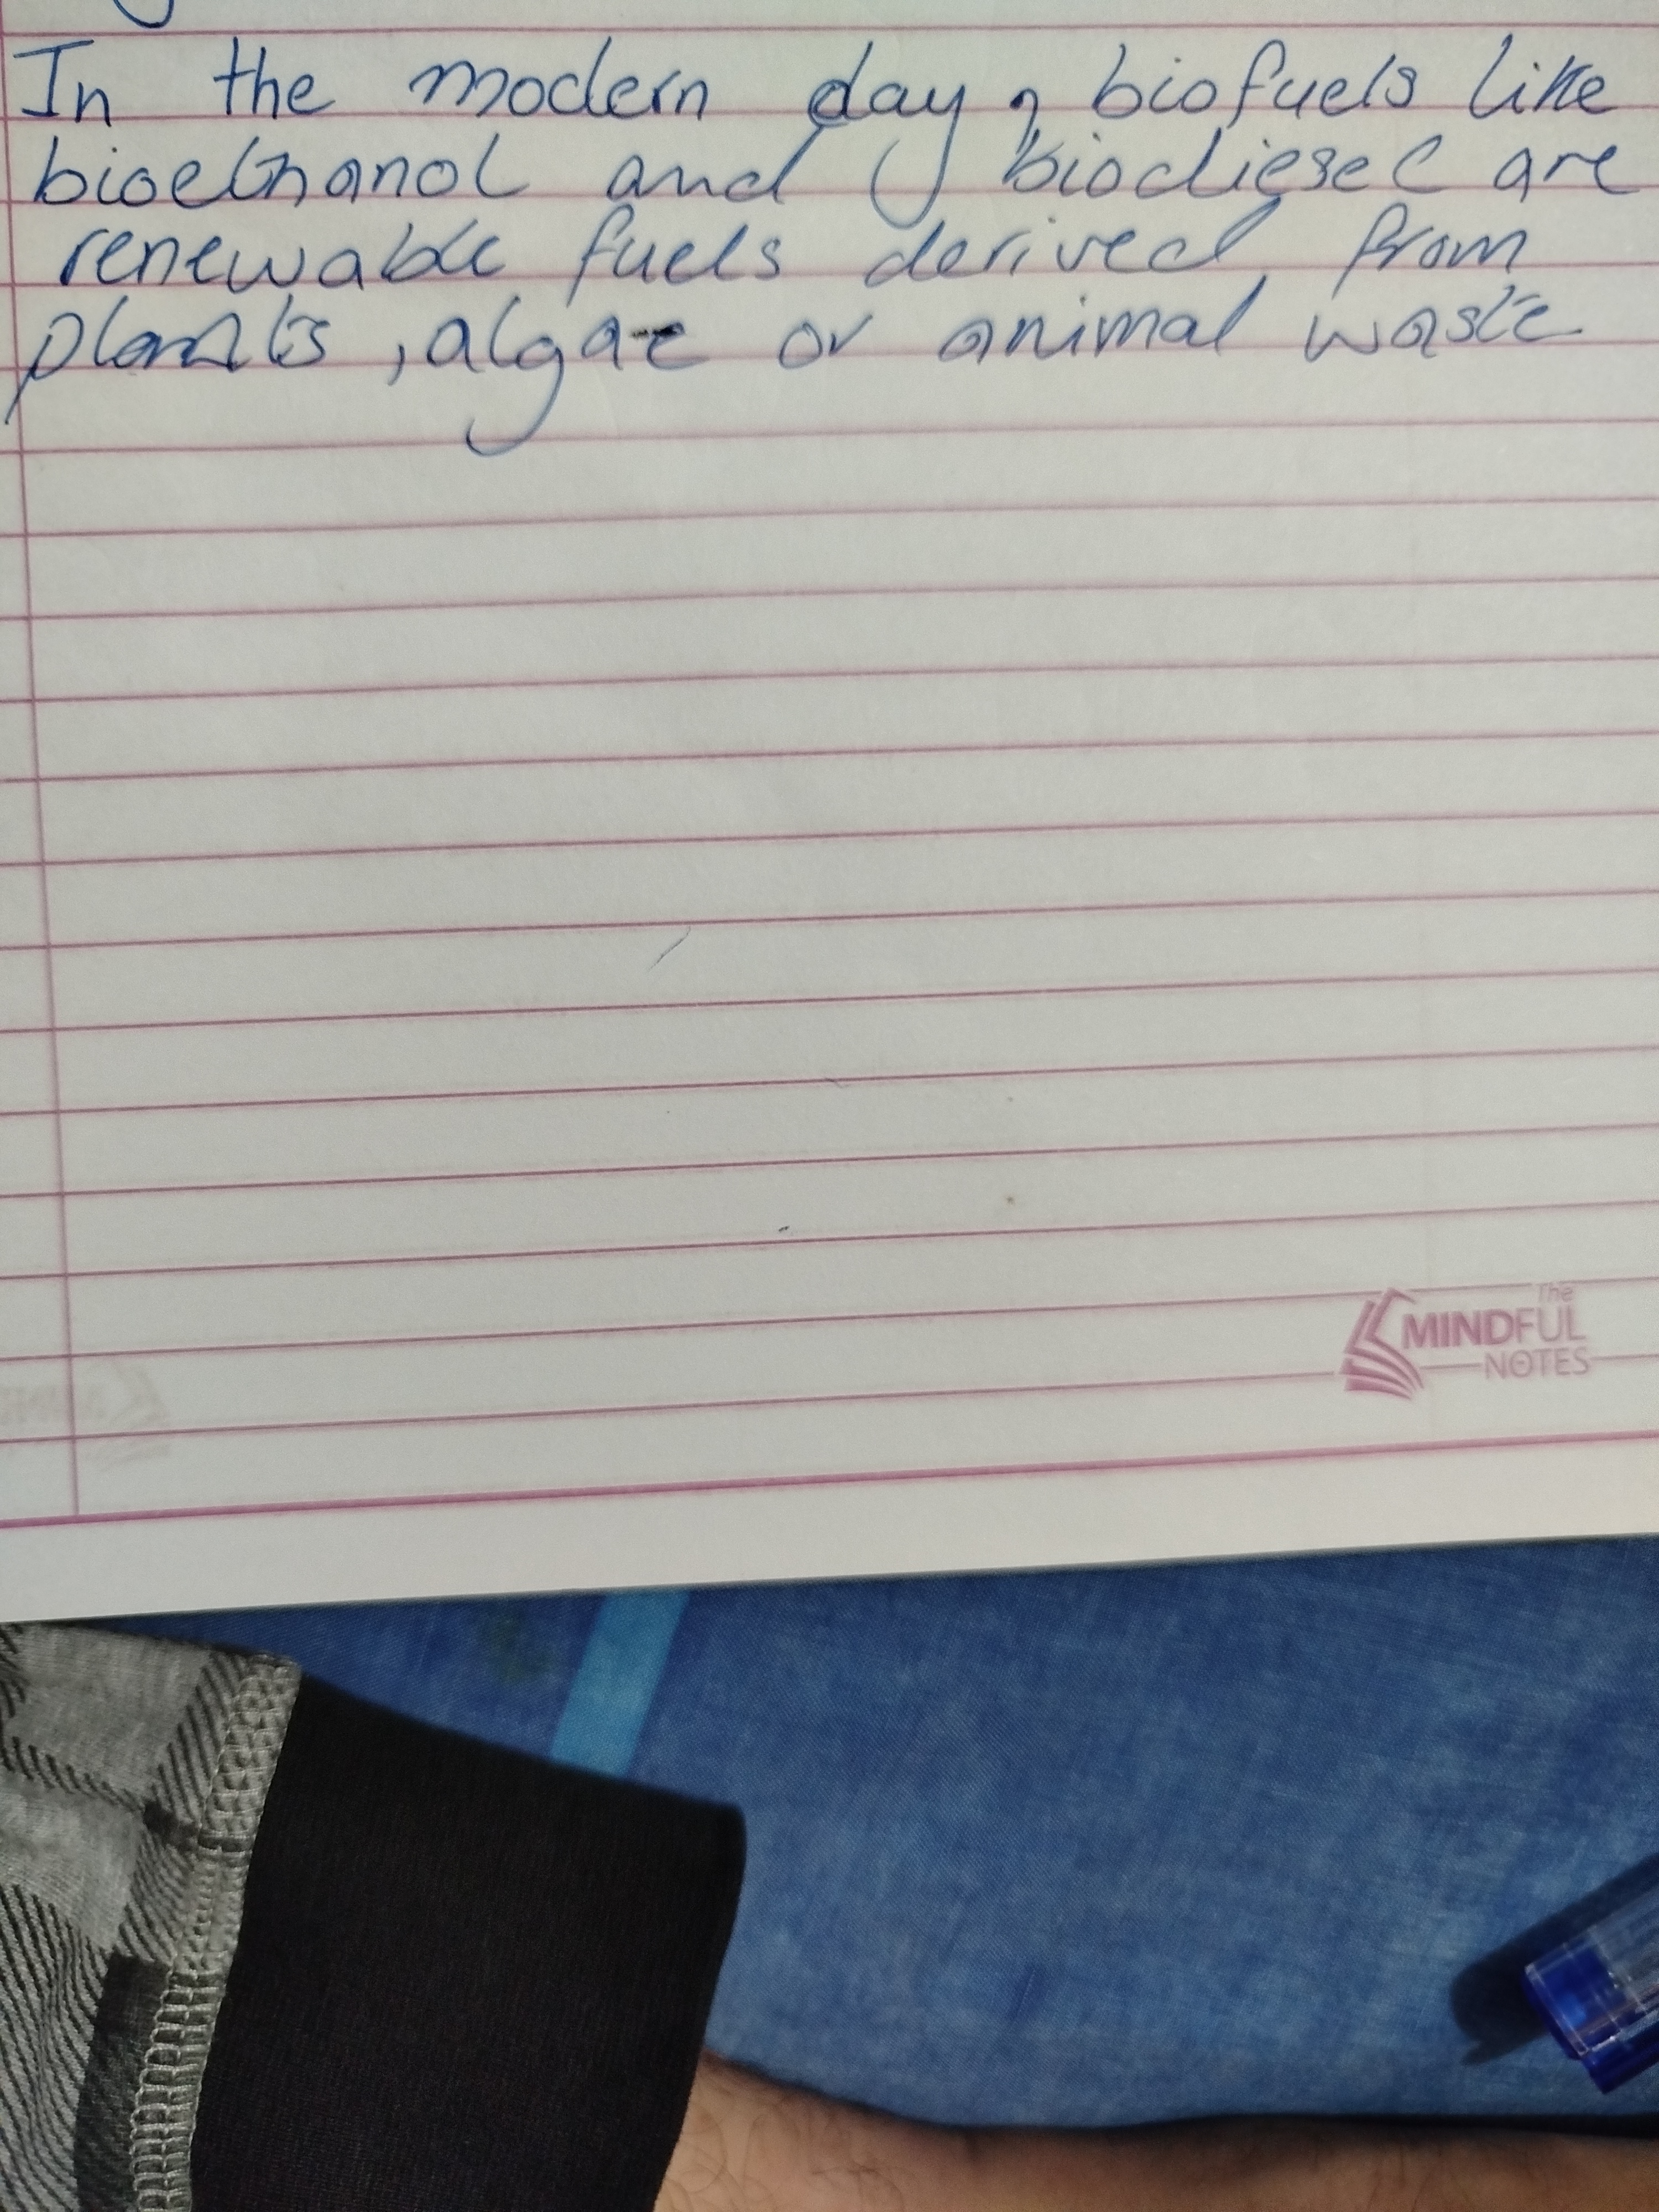 In the modern day, biofuels like
bioethanol and biodiesel are
renewable fuels derived from
plants, algae or animal waste
The
MINDFUL
NOTES